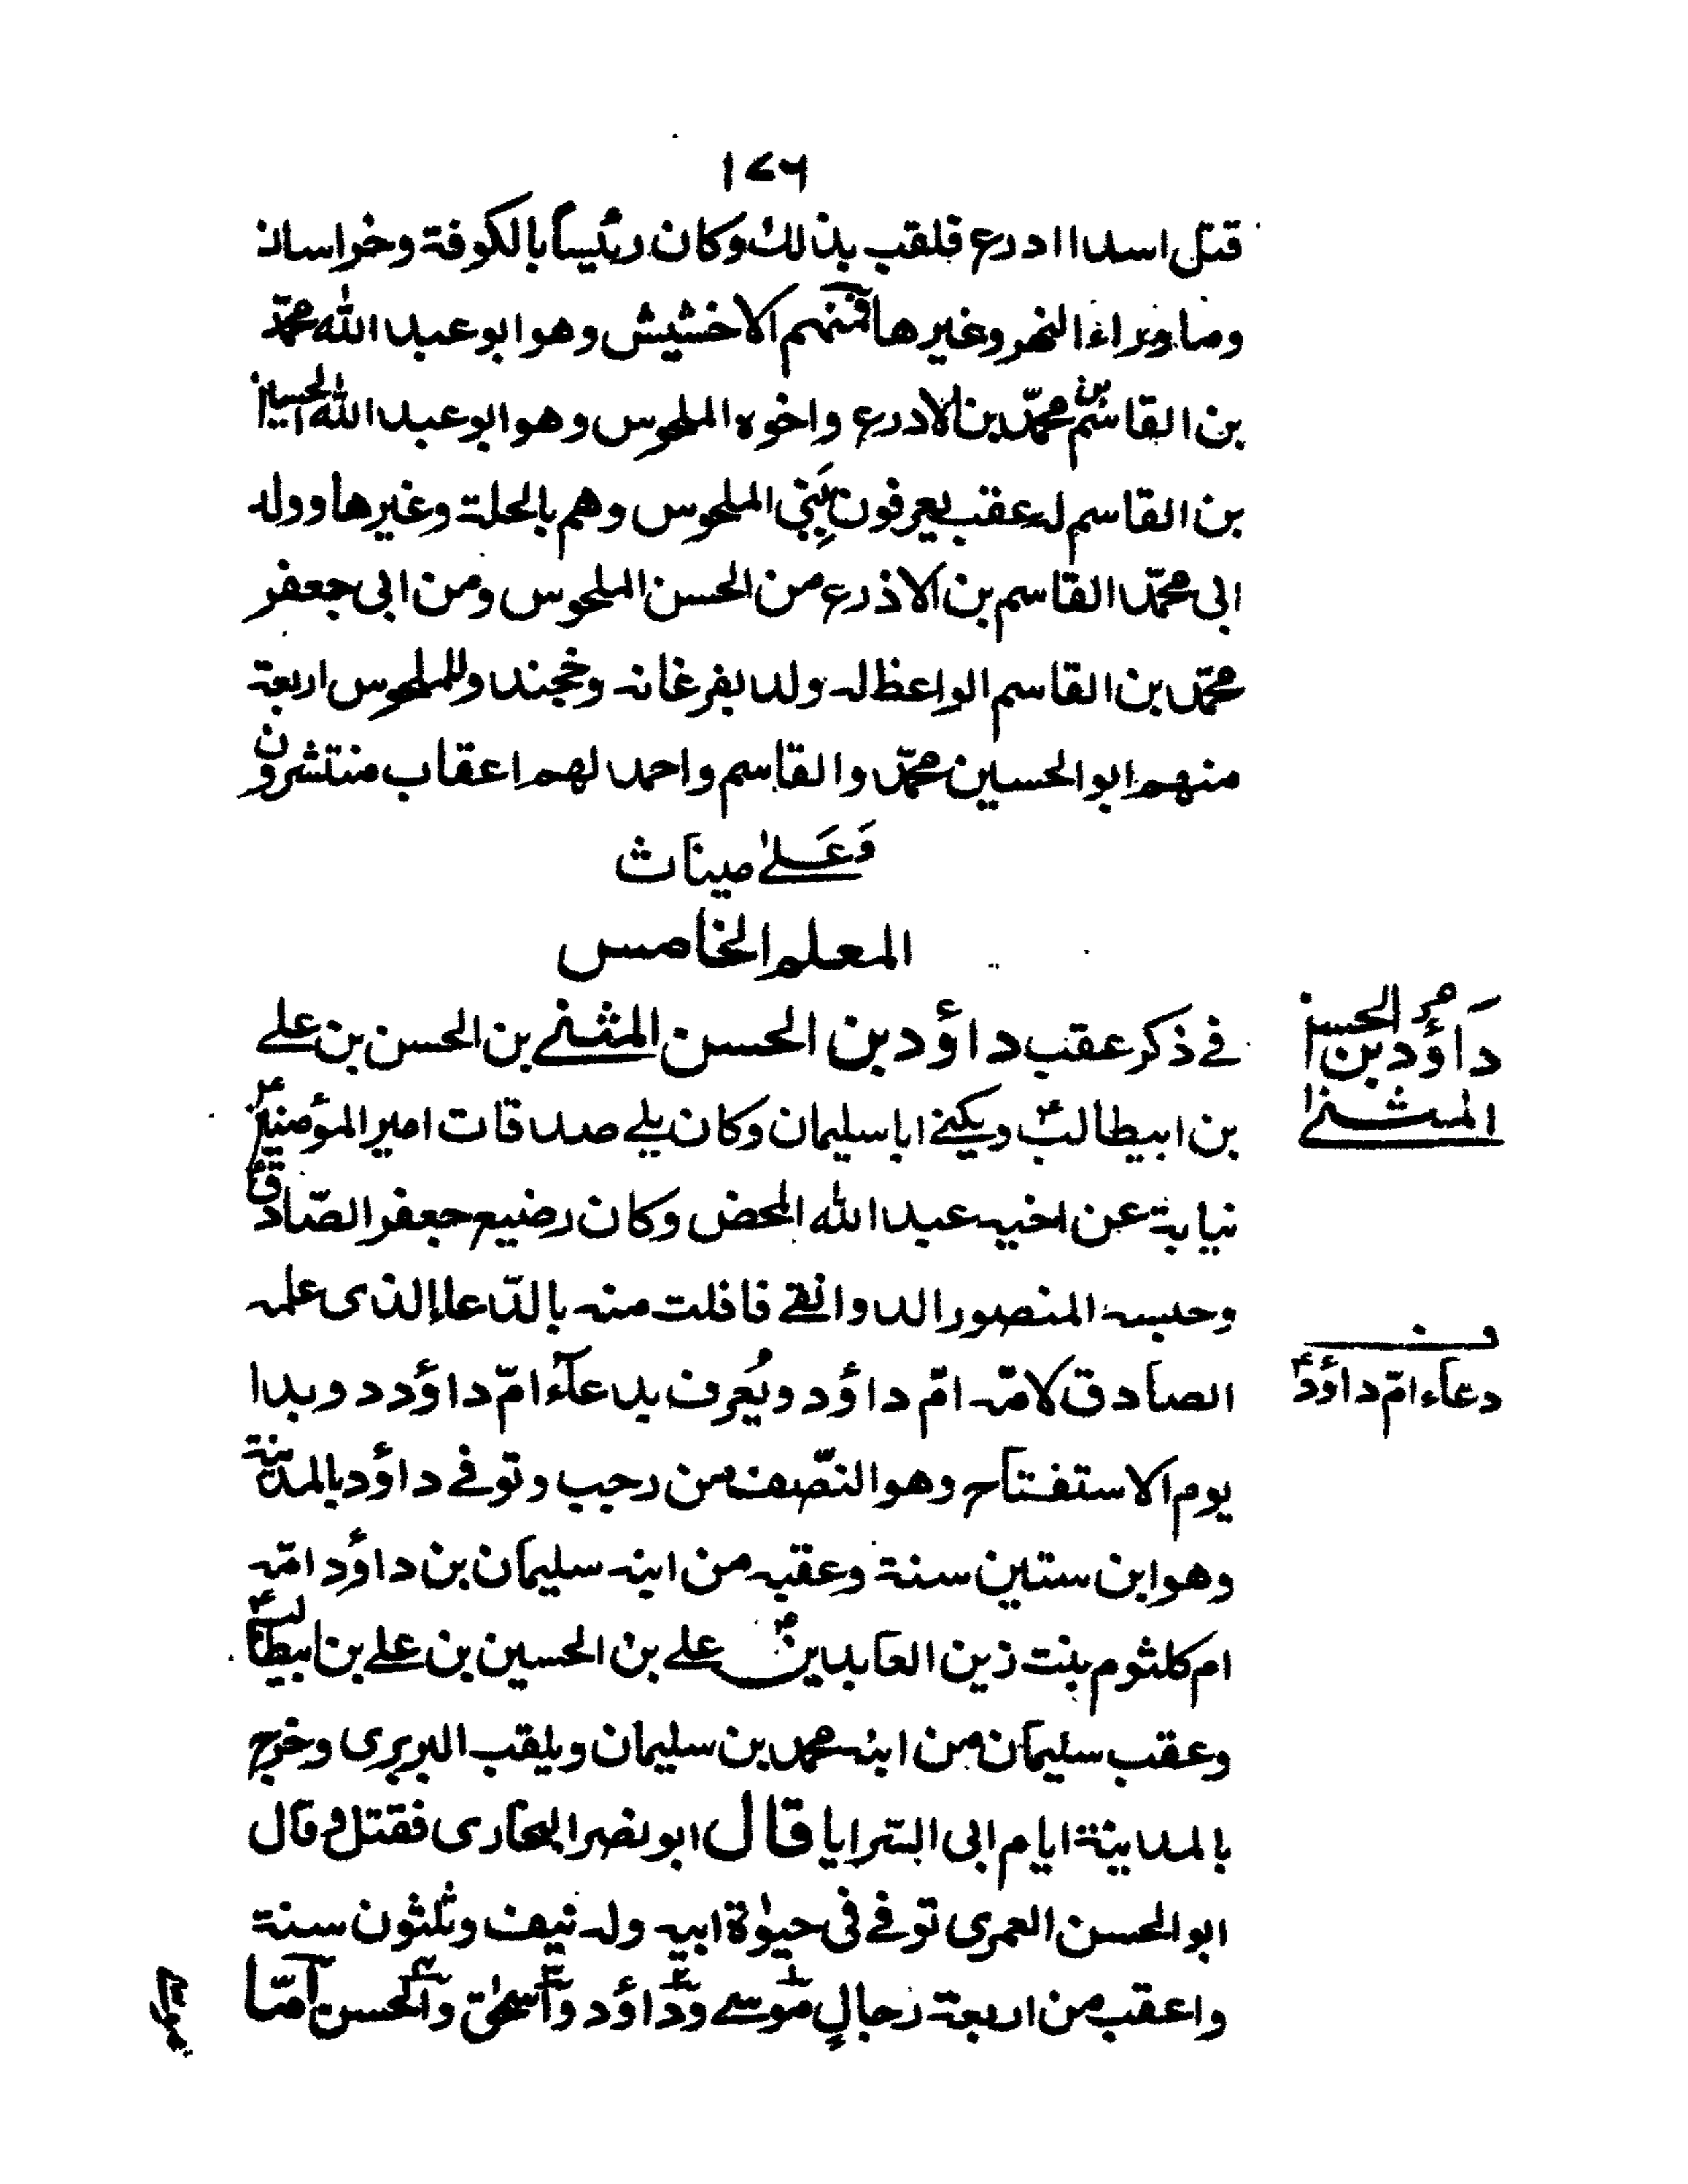 ١٧٦
قتل اسدا ادرع فلقب بذلك وكان رئيسا بالكوفة وخراسان
وما وراء النهر وغيرها فمنهم الاخشيش وهو ابو عبد الله محمّد
بن القاسم بن محمّد بن الادرع واخوه الملحوس وهو ابو عبد الله الحسين
بن القاسم له عقب يعرفون ببَني الملحوس وهم بالحلة وغيرها وولد
ابى محمّد القاسم بن الاذرع من الحسن الملحوس ومن ابى جعفر
محمّد بن القاسم الواعظ له ولد بفرغانه وخجند وللملحوس اربعة
منهم ابو الحسين محمّد والقاسم واحمد لهم اعقاب منتشرون
وَعَلىٰ ميناث
المعلم الخامس
فے ذكر عقب داؤد بن الحسن المثنے بن الحسن بن علے
بن ابيطالبؑ ويكنے ابا سليمان وكان يلے صدقات امير المؤمنينؑ
نيابة عن اخيه عبد الله المحض وكان رضيع جعفر الصّادقؑ
وحبسه المنصور الدوانقے فافلت منه بالدّعاء الذى علمه
الصادق لامّه امّ داؤد ويُعرف بدعآء امّ داؤد وبدا
يوم الاستفتاح وهو النّصف من رجب وتوفے داؤد بالمدينة
وهو ابن ستين سنة وعقبه من ابنه سليمان بن داؤد امّه
ام كلثوم بنت زين العابدينؑ علے بن الحسين بن علے بن ابيطالبؑ
وعقب سليمان من ابنه محمد بن سليمان ويلقب البربرى وخرج
بالمدينة ايام ابى السّرايا قال ابو نصر البخارى فقتل وقال
ابو الحسن العمرى توفے فى حيٰوة ابيه وله نيف وثلٰثون سنة
واعقب من اربعة رجالٍ موسے وداؤد واسحٰق والحسن امّا
داؤد بن الحسن
المثنے
دعاء امّ داؤدؑ